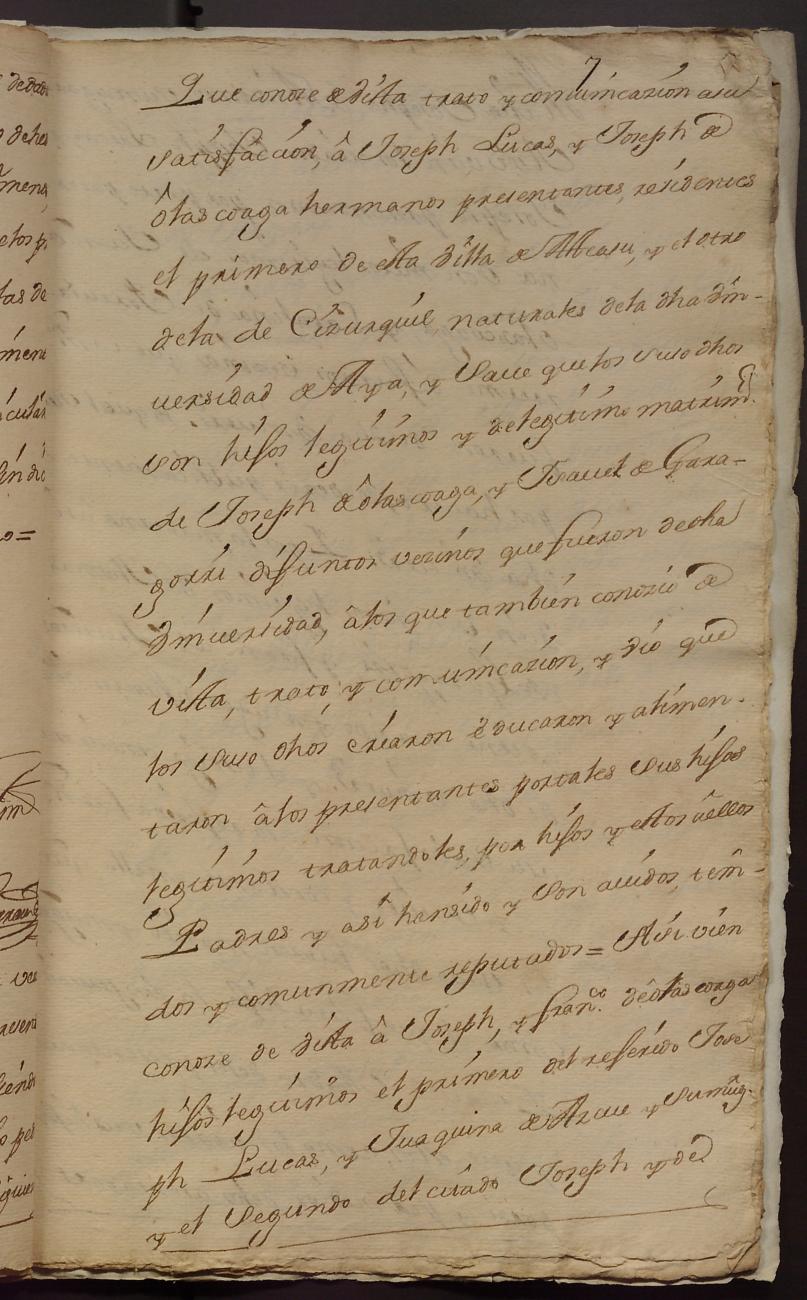 7
Que conoze de vista trato y comunicazion a su
satisfaccion, â Joseph Lucas, y Joseph de
ôlascoaga hermanos presentantes, residentes
el primero de esta Villa de Albeasu, y el otro
de la de Cizurquil, naturales de la dha Vni-
uersidad de Aya, y saue que los suso dhos
son hijos legitimos y de legitimo matrim.º
de Joseph de ôlascoaga, y Ysauel de Gara-
gorri difuntos vezinos que fueron de dha
Vniuersidad, âlos que tambien conozio de
vista, trato, y comunicazion, y vió que
los suso dhos criaron educaron y alimen-
taron âlos presentantes por tales sus hijos
legitimos tratandoles, por hijos y estos âellos
Padres y asi han sido y son auidos, teni-
dos y comunmente reputados = Assi vien
conoze de vista â Joseph, y fran.co de ôlascoaga
hijos legitimos el primero del referido Jose
ph Lucas, y Juaquina de Azcue y su mug.r
y el segundo del citado Joseph y de